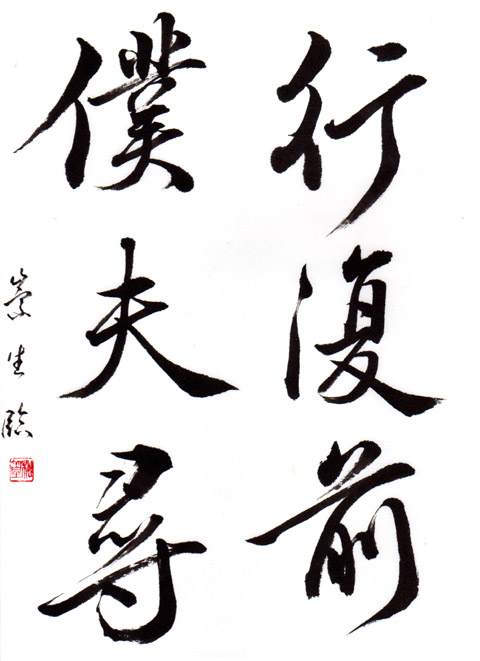 行復前
僕夫尋
崇生臨